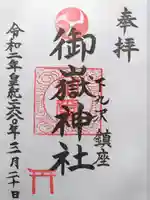 奉拝
下九沢鎮座
御嶽神社
令和二年皇紀二六八〇年三月二十日